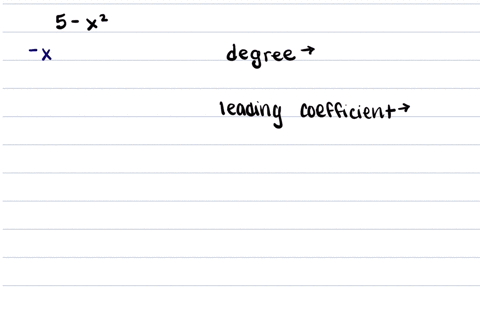 5 - x²
-x
degree →
leading coefficient →